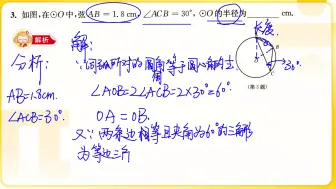 3. 如图,在⊙O中,弦AB=1.8 cm,∠ACB=30°,⊙O的半径为 cm.
长度
解析
解:
分析:
∵同弧所对的圆周角等于圆心角的
30°
(第3题)
AB=1.8cm.
∠AOB=2∠ACB=2×30°=60°
∠ACB=30°.
OA=OB.
又∵两条边相等且夹角为60°的三角形
为等边三角